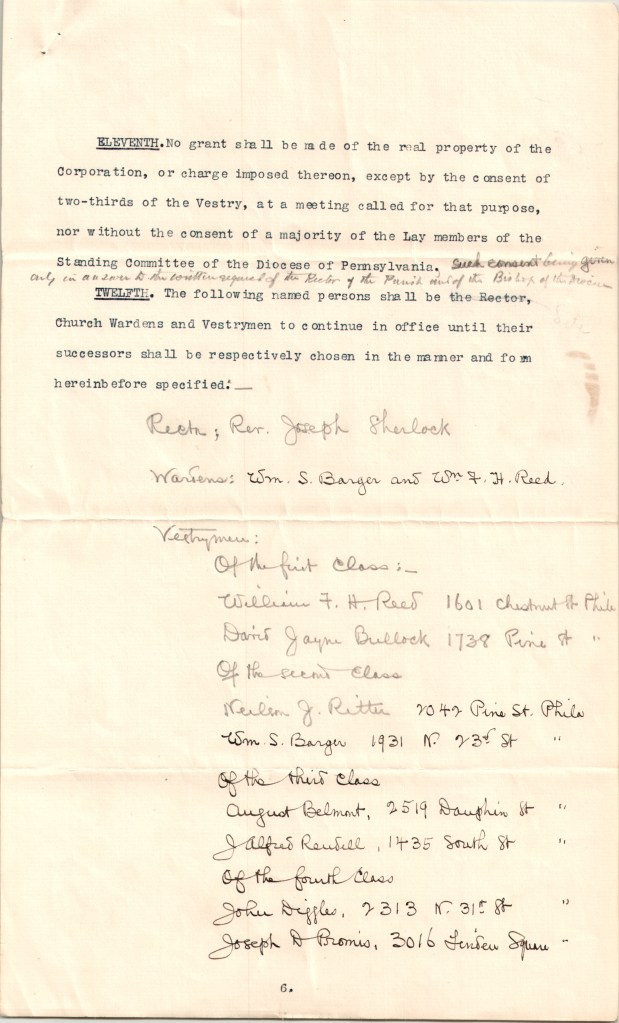 ELEVENTH. No grant shall be made of the real property of the
Corporation, or charge imposed thereon, except by the consent of
two-thirds of the Vestry, at a meeting called for that purpose,
nor without the consent of a majority of the Lay members of the
Standing Committee of the Diocese of Pennsylvania. Such consent being given
only in answer to the written request of the Rector of the Parish and of the Bishop of the Diocese
TWELFTH. The following named persons shall be the Rector,
Church Wardens and Vestrymen to continue in office until their
successors shall be respectively chosen in the manner and form
hereinbefore specified:—
Rector; Rev. Joseph Sherlock
Wardens: Wm. S. Barger and Wm F. H. Reed.
Vestrymen:
Of the first Class:—
William F. H. Reed 1601 Chestnut St Phila
David Jayne Bullock 1738 Pine St "
Of the second Class
Neilson J. Ritter 2042 Pine St. Phila
Wm. S. Barger 1931 N. 23rd St "
Of the third Class
August Belmont, 2519 Dauphin St "
J Alfred Rendell, 1435 South St "
Of the fourth Class
John Diggles, 2313 N. 31st St "
Joseph D Bromis, 3016 Linden Square "
6.